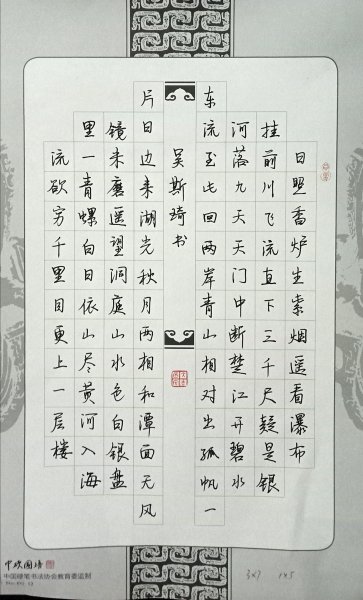 日照香炉生紫烟遥看瀑布
挂前川飞流直下三千尺疑是银
河落九天天门中断楚江开碧水
东流至此回两岸青山相对出孤帆一
片日边来湖光秋月两相和潭面无风
镜未磨遥望洞庭山水色白银盘
里一青螺白日依山尽黄河入海
流欲穷千里目更上一层楼
吴斯琦书
中国硬笔书法协会教育委监制
3×7 1×5